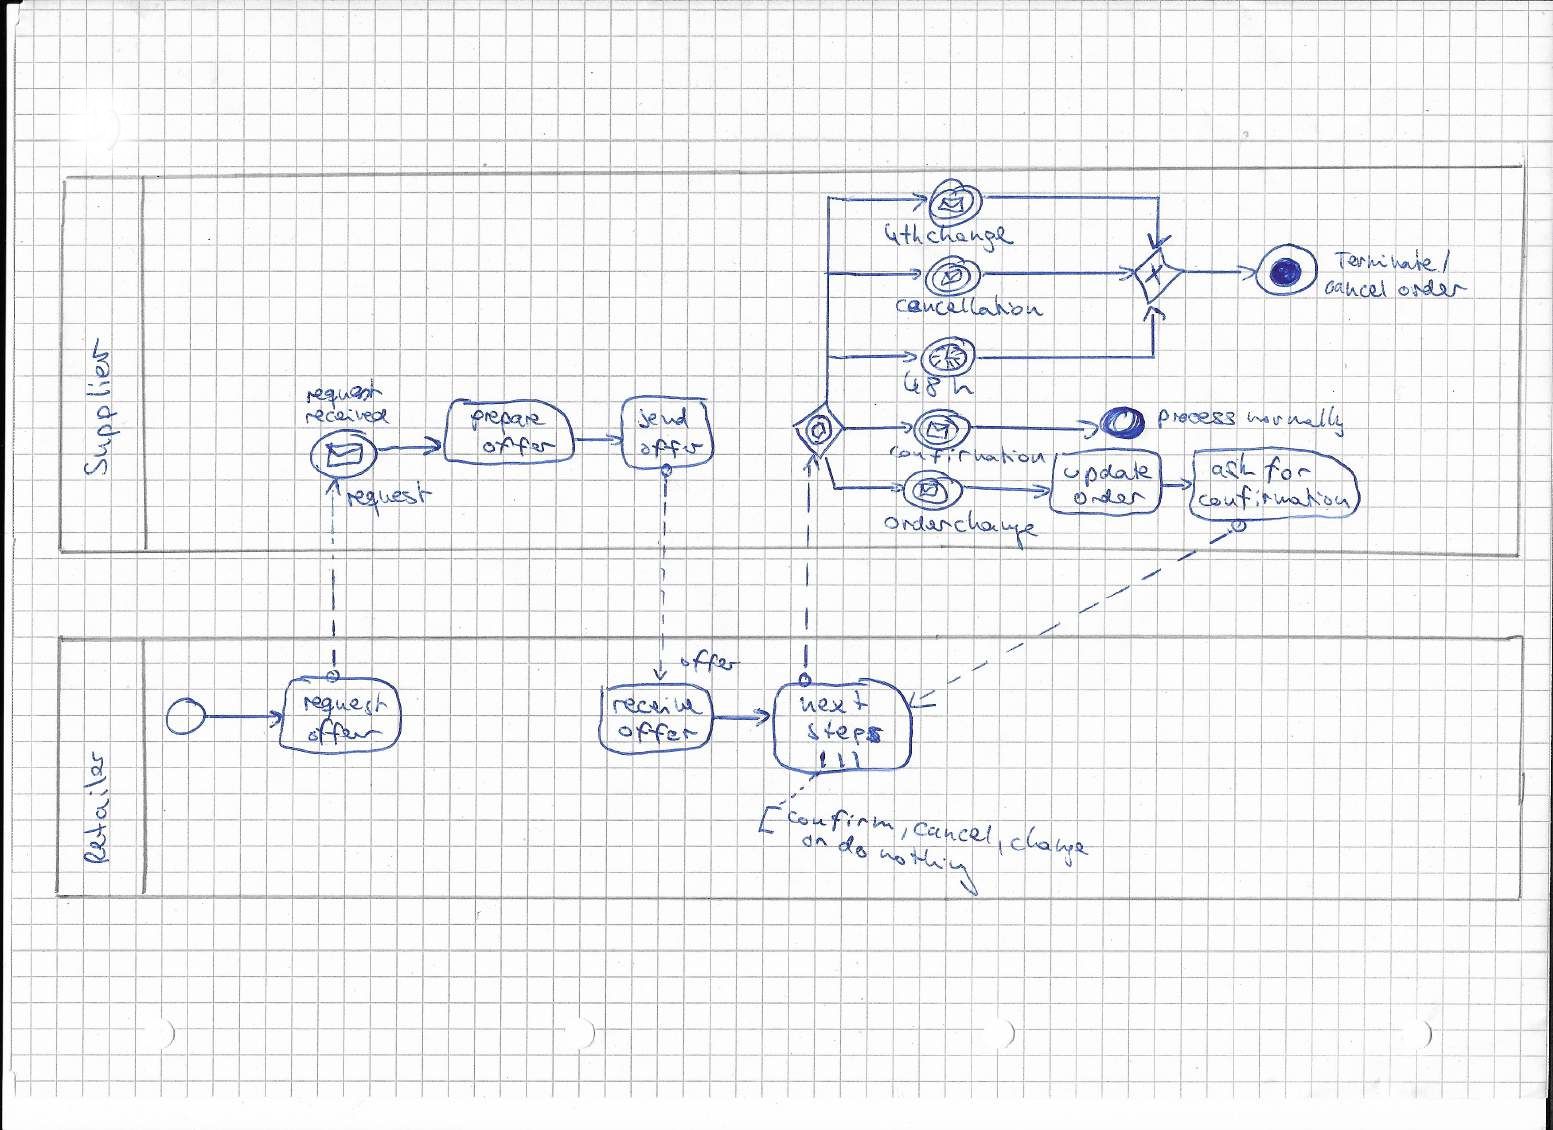 Supplier
request
received
request
prepare
offer
send
offer
4th change
cancellation
48 h
confirmation
order change
Terminate/
cancel order
process normally
update
order
ask for
confirmation
Retailer
request
offer
offer
receive
offer
next
steps
confirm, cancel, change
or do nothing